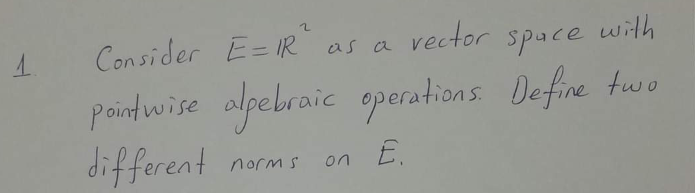 1. Consider E = ℝ² as a vector space with
pointwise algebraic operations. Define two
different norms on E.